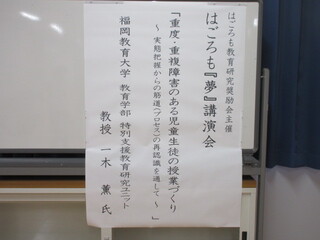 はごろも教育研究奨励会主催
はごろも『夢』講演会
「重度・重複障害のある児童生徒の授業づくり
～実態把握からの筋道(プロセス)の再認識を通して～」
福岡教育大学 教育学部 特別支援教育研究ユニット
教授 一木 薫 氏